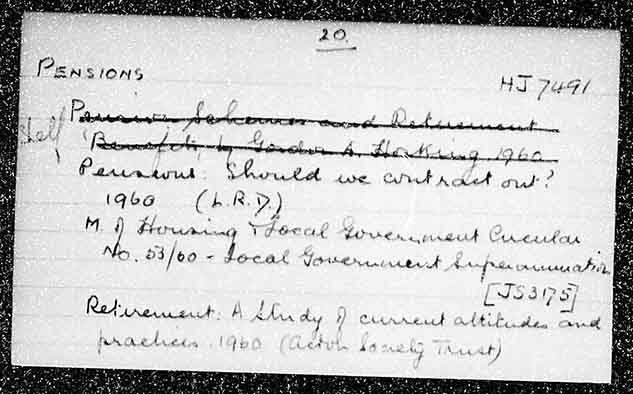 20.
PENSIONS
HJ 7491
Pension Schemes and Retirement
Shelf
Benefits, by Gordon A. Hosking 1960
Pensions: Should we contract out?
1960 (L.R.D.)
M. of Housing & Local Government Circular
No. 53/60 - Local Government Superannuation
[JS3175]
Retirement: A Study of current attitudes and
practices. 1960 (Acton Society Trust)